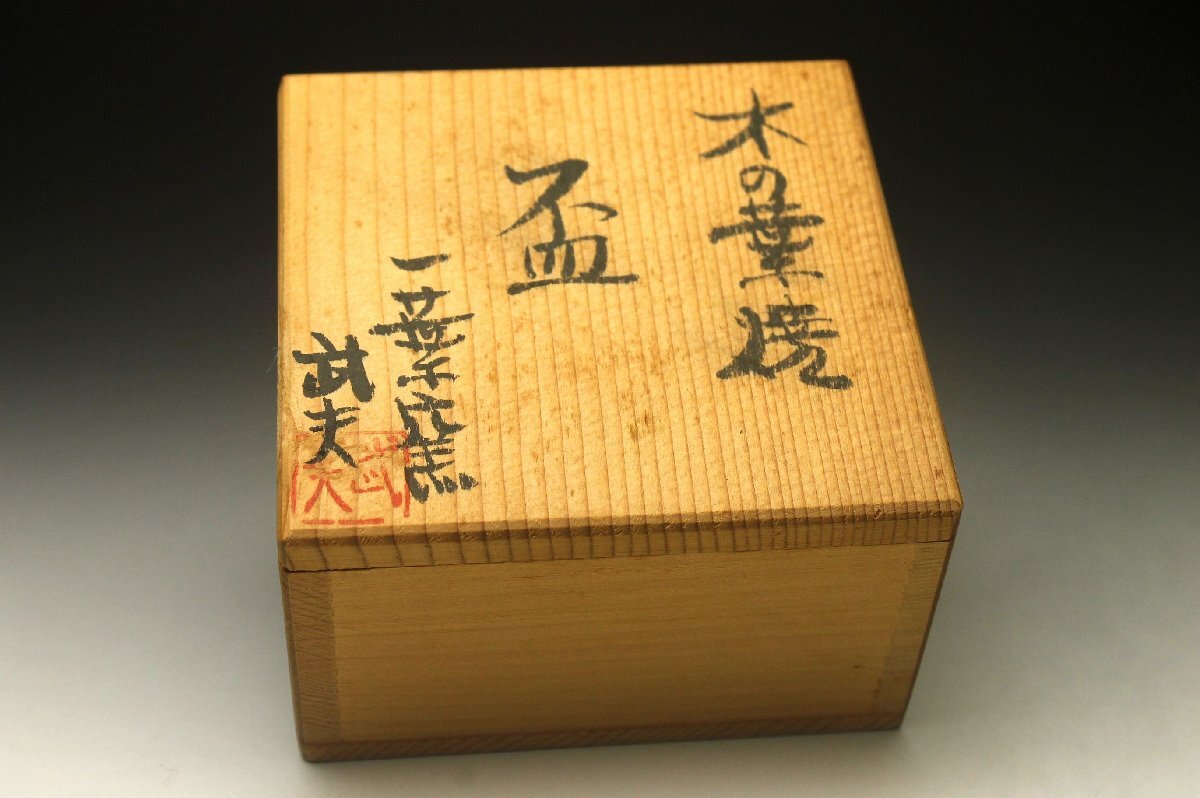 木の葉焼
盃
一葉窯
武夫
武夫